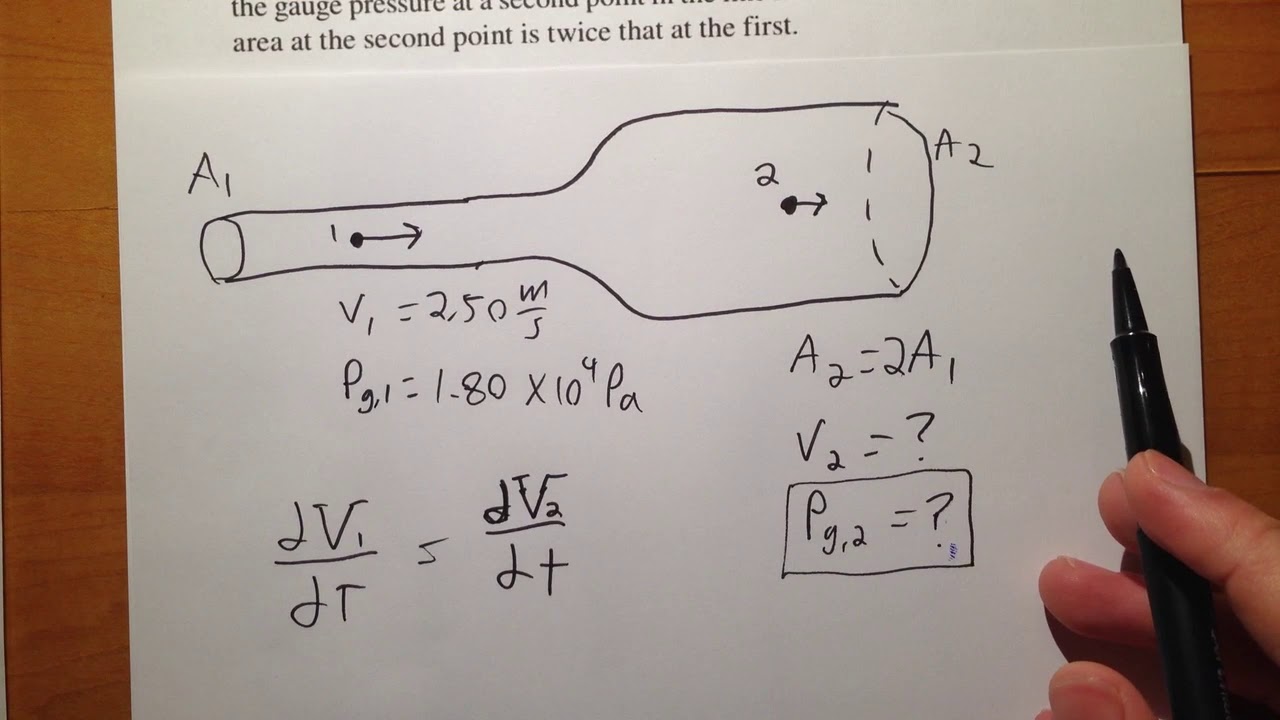 the gauge pressure at a second point in the
area at the second point is twice that at the first.
A₁
A₂
1
2
V₁ = 2.50 m/s
Pg,1 = 1.80 × 10⁴ Pa
A₂ = 2A₁
V₂ = ?
Pg,2 = ?
dV₁/dT = dV₂/dt